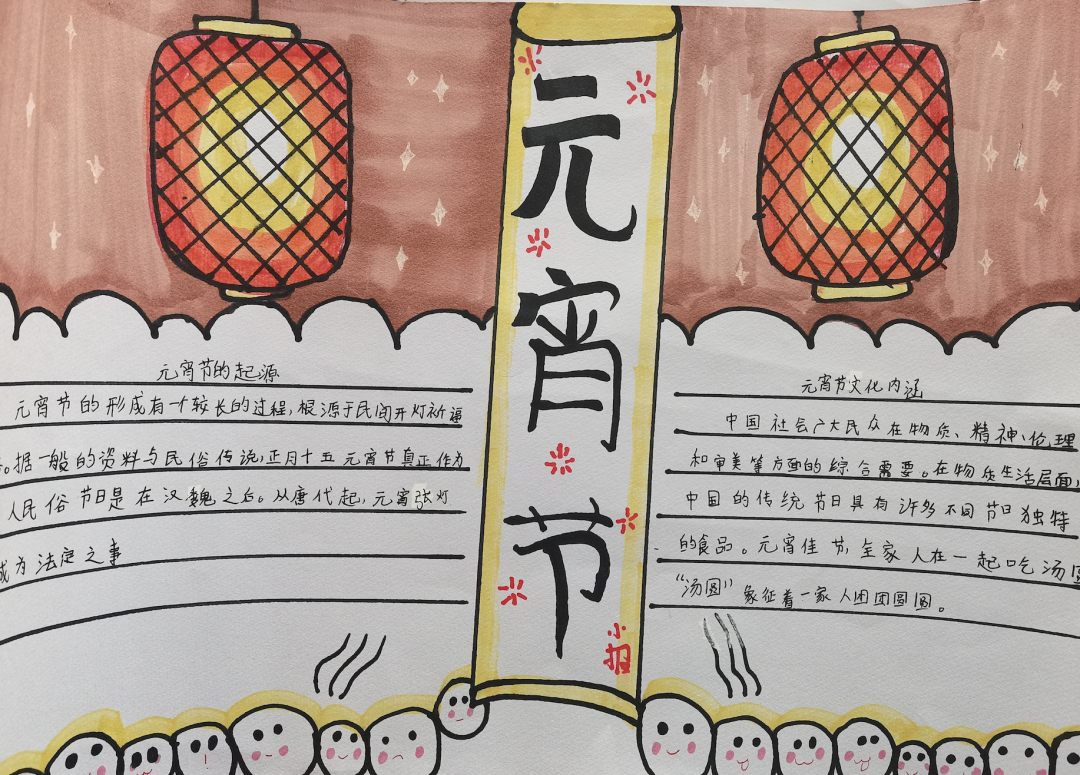 元宵节
元宵节的起源
元宵节的形成有一个较长的过程,根源于民间开灯祈福
。据一般的资料与民俗传说,正月十五元宵节真正作为
人民俗节日是在汉魏之后。从唐代起,元宵张灯
成为法定之事
元宵节文化内涵
中国社会广大民众在物质、精神、伦理
和审美等方面的综合需要。在物质生活层面,
中国的传统节日具有许多不同节日独特
的食品。元宵佳节,全家人在一起吃汤圆
“汤圆”象征着一家人团团圆圆。